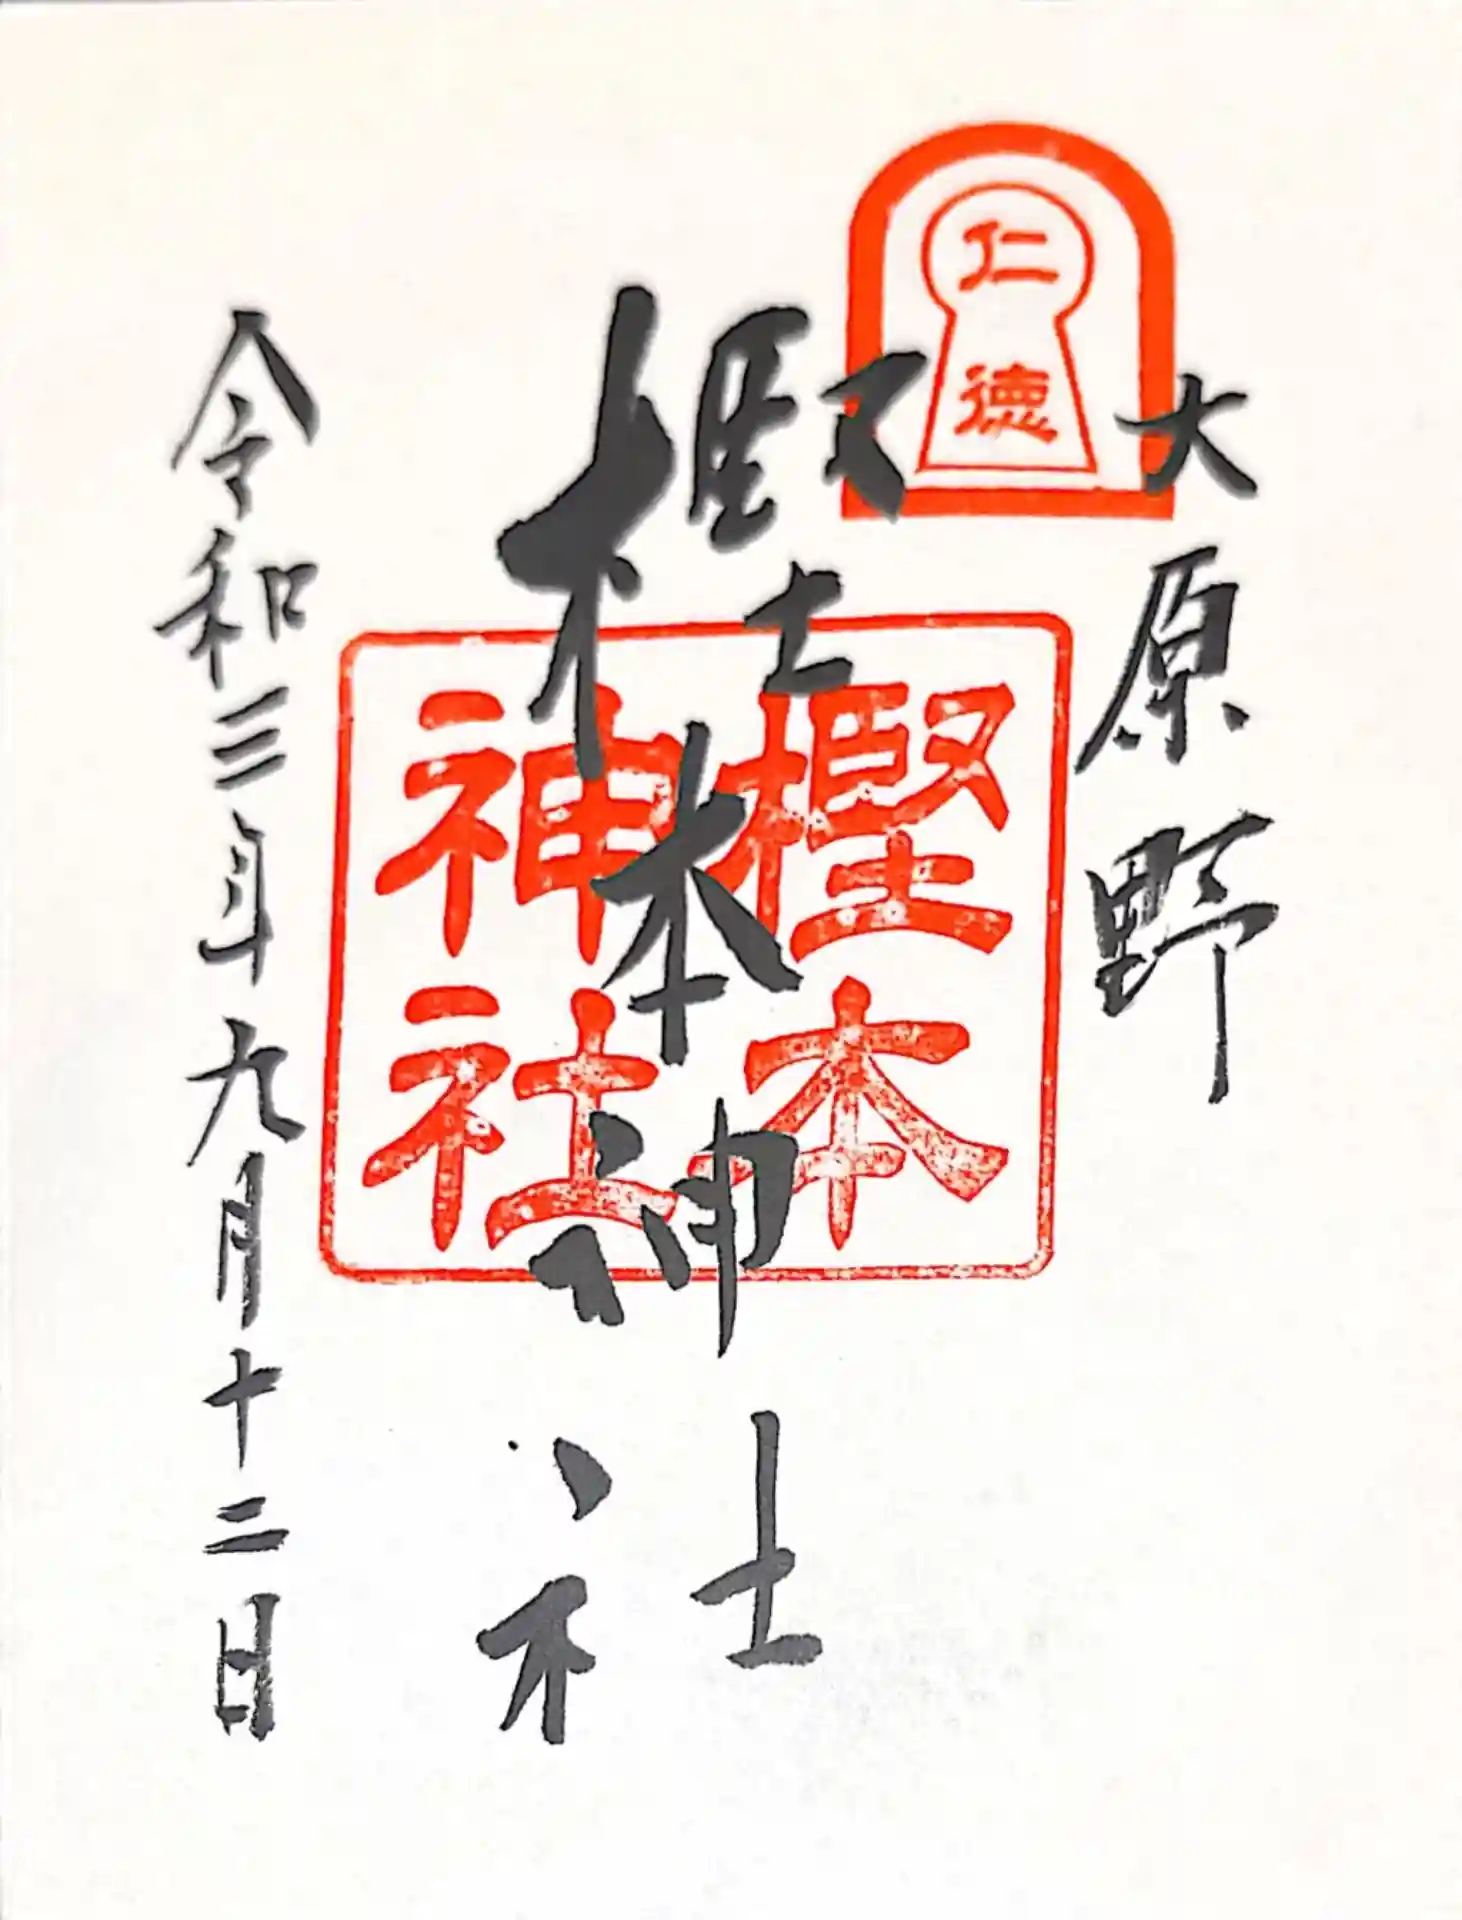 仁徳
大原野
樫本神社
樫本
神社
令和三年九月十二日